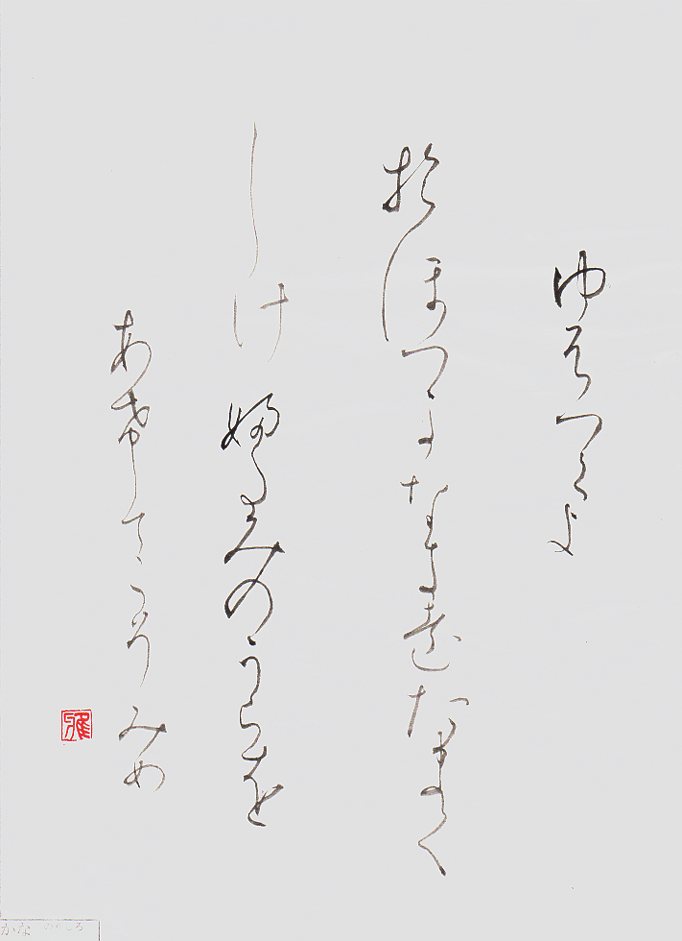 ゆふつくよ
おほつかなきをたまく
しけふたみのうらは
あけてこそみめ
雅
かな